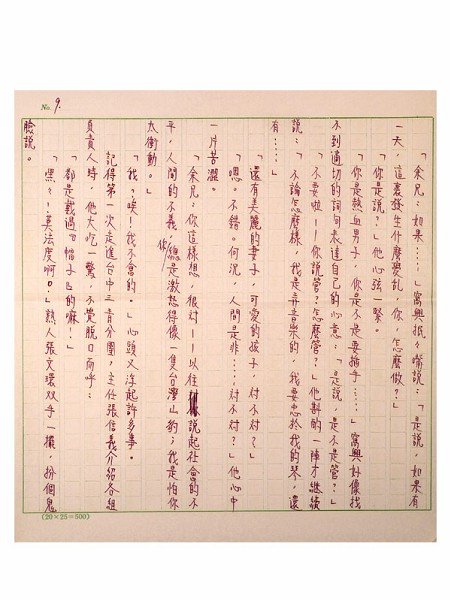 No. 9.
「余兄:如果……」寓興抿々嘴說:「是說,如果有
一天,這裏發生什麼變亂,你,怎麼做?」
「你是說?」他心弦一緊。
「你是熱血男子,你是不是要插手……」寓興好像找
不到適切的詞句表達自己的心意:「是說,是不是管?」
「不要啦——你說管?怎麼管?」他斟酌一陣才繼續
說:「不論怎麼樣,我是弄音樂的,我要忠於我的琴,還
有……」
「還有美麗的妻子,可愛的孩子,對不對?」
「嗯。不錯。何況,人間是非……對不對?」他心中
一片苦澀。
「余兄:你這樣想,很對——以往說起社會的不
平,人間的不義,你總是激怒得像一隻台灣山豹;我是怕你
太衝動。」
「我?唉!我不會的。」心頭又浮起許多事。
記得第一次走進台中三青分團,主任張信義介紹各組
負責人時,他大吃一驚,不覺脫口而呼:
「都是戴過『帽子』的嘛!」
「嘿々!莫法度啊。」熟人張文環双手一攤,扮個鬼
臉說。
(20×25=500)